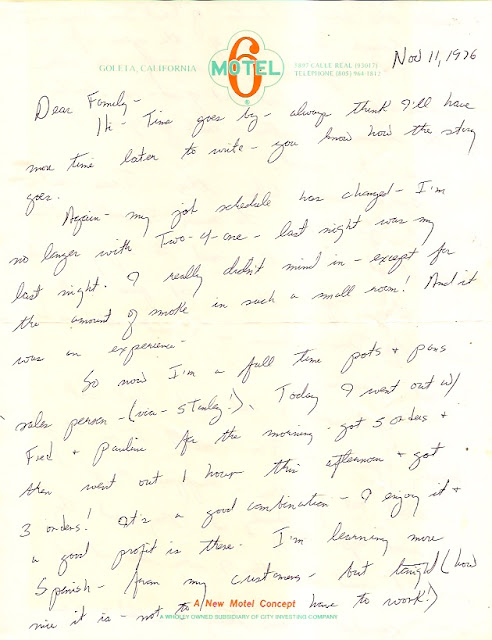 GOLETA, CALIFORNIA
6
MOTEL
®
5897 CALLE REAL (93017)
TELEPHONE (805) 964-1812
Nov 11, 1976
Dear Family -
Hi - Time goes by - always think I'll have
more time later to write - you know how the story
goes.
Again - my job schedule has changed - I'm
no longer with Two-4-one - last night was my
last night. I really didn't mind in - except for
the amount of smoke in such a small room! And it
was an experience -
So now I'm a full time pots + pans
sales person - (via - Stanley!). Today I went out w/
Fred + Pauline for the morning - got 5 orders +
then went out 1 hour this afternoon + got
3 orders! It's a good combination - I enjoy it +
a good profit is there. I'm learning more
Spanish - from my customers - but tonight (how
nice it is - not to have to work!)
A New Motel Concept
A WHOLLY OWNED SUBSIDIARY OF CITY INVESTING COMPANY